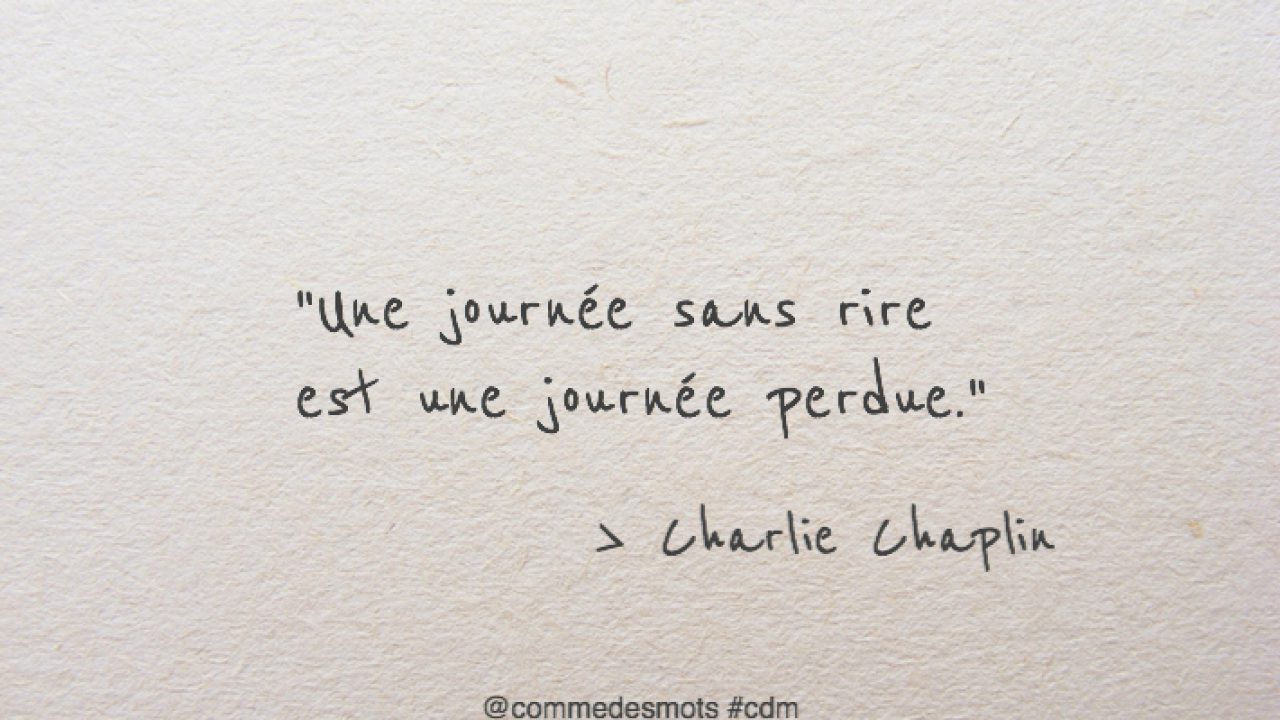 "Une journée sans rire
est une journée perdue."
> Charlie Chaplin
@commedesmots #cdm